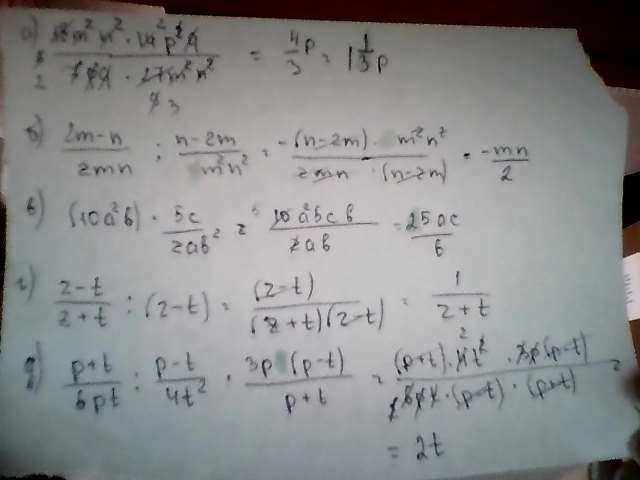 а) 18m²n² · 14p²q / 7pq · 27m²n² = 4/3 p = 1 1/3 p
б) 2m-n / 2mn : n-2m / m²n² = -(n-2m) · m²n² / 2mn · (n-2m) = -mn / 2
в) (10a²b) · 5c / 2ab² = 10a²b5cb / 2ab = 25ac / b
г) z-t / z+t : (z-t) = (z-t) / (z+t)(z-t) = 1 / z+t
д) p+t / 6pt : p-t / 4t² · 3p(p-t) / p+t = (p+t) · 4t² · 3p(p-t) / 6pt · (p-t) · (p+t) =
= 2t